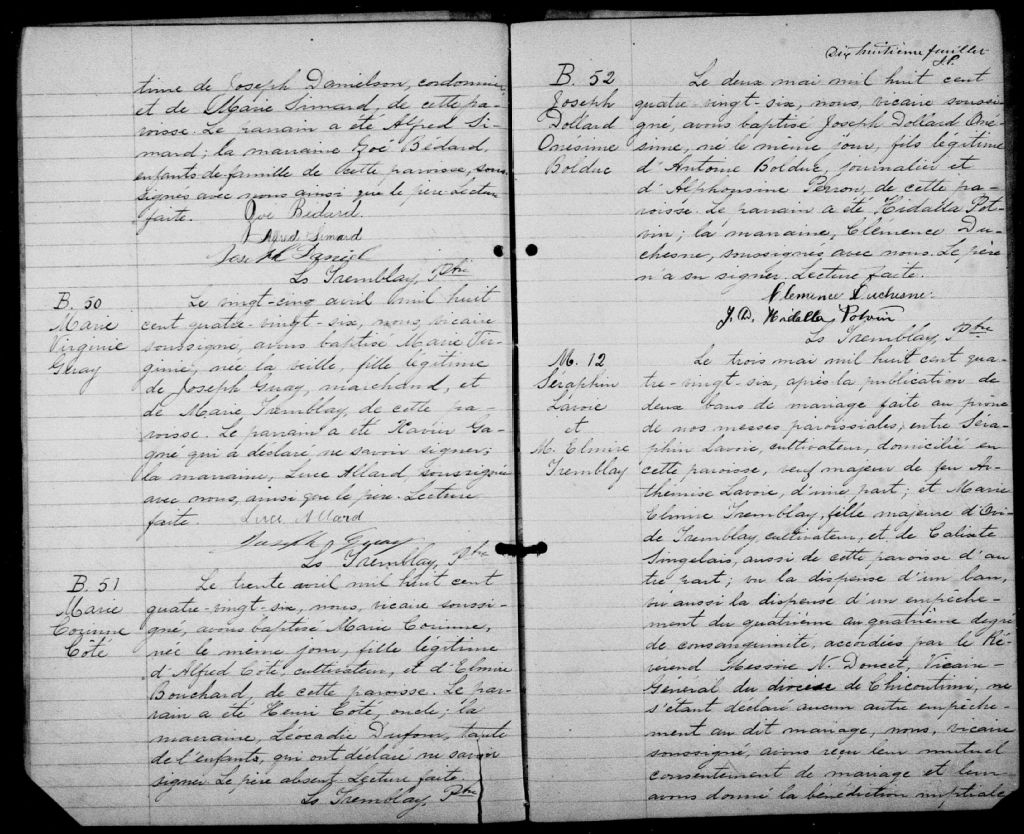 time de Joseph Danielson, cordonnier,
et de Marie Simard, de cette pa-
roisse. Le parrain a été Alfred Si-
mard; la marraine Zoé Bédard,
enfants de famille de cette paroisse, sous-
signés avec nous ainsi que le père. Lecture
faite.
Zoé Bédard.
Alfred Simard
Ls Tremblay, Ptre
B. 50
Marie
Virginie
Guay
Le vingt-cinq avril mil huit
cent quatre-vingt-six, nous, vicaire
soussigné, avons baptisé Marie Vir-
ginie, née la veille, fille légitime
de Joseph Guay, marchand, et
de Marie Tremblay, de cette pa-
roisse. Le parrain a été Xavier Ga-
gné qui a déclaré ne savoir signer;
la marraine, Luce Allard, soussignée
avec nous, ainsi que le père. Lecture
faite. Luce Allard
Joseph Guay
Ls Tremblay, Ptre
B. 51
Marie
Corinne
Côté
Le trente avril mil huit cent
quatre-vingt-six, nous, vicaire soussi-
gné, avons baptisé Marie Corinne,
née le même jour, fille légitime
d'Alfred Côté, cultivateur, et d'Elmire
Bouchard, de cette paroisse. Le par-
rain a été Henri Côté, oncle; la
marraine, Léocadie Dufour, tante
de l'enfant, qui ont déclaré ne savoir
signer. Le père absent. Lecture faite.
Ls Tremblay, Ptre
Dix huitième feuillet
B. 52
Joseph
Dollard
Onésime
Bolduc
Le deux mai mil huit cent
quatre-vingt-six, nous, vicaire soussi-
gné, avons baptisé Joseph Dollard Oné-
sime, né le même jour, fils légitime
d'Antoine Bolduc, journalier et
d'Alphonsine Perron, de cette pa-
roisse. Le parrain a été Hidalla Pot-
vin; la marraine, Clémence Du-
chesne, soussignés avec nous. Le père
n'a su signer. Lecture faite.
Clemence Duchesne.
J. D. Hidalla Potvin
Ls Tremblay, Ptre
M. 12
Séraphin
Lavoie
et
M. Elmire
Tremblay
Le trois mai mil huit cent qua-
tre-vingt-six, après la publication de
deux bans de mariage faite au prône
de nos messes paroissiales, entre Séra-
phin Lavoie, cultivateur, domicilié en
cette paroisse, veuf majeur de feu Ar-
thémise Lavoie, d'une part; et Marie
Elmire Tremblay, fille majeure d'Ovi-
de Tremblay, cultivateur, et de Calixte
Singelais, aussi de cette paroisse d'au
tre part; vu la dispense d'un ban,
vu aussi la dispense d'un empêche-
ment du quatrième au quatrième degré
de consanguinité, accordées par le Ré-
vérend Messire N. Doucet, Vicaire-
Général du diocèse de Chicoutimi, ne
s'étant déclaré aucun autre empêche-
ment au dit mariage, nous, vicaire
soussigné, avons reçu leur mutuel
consentement de mariage et leur
avons donné la bénédiction nuptiale